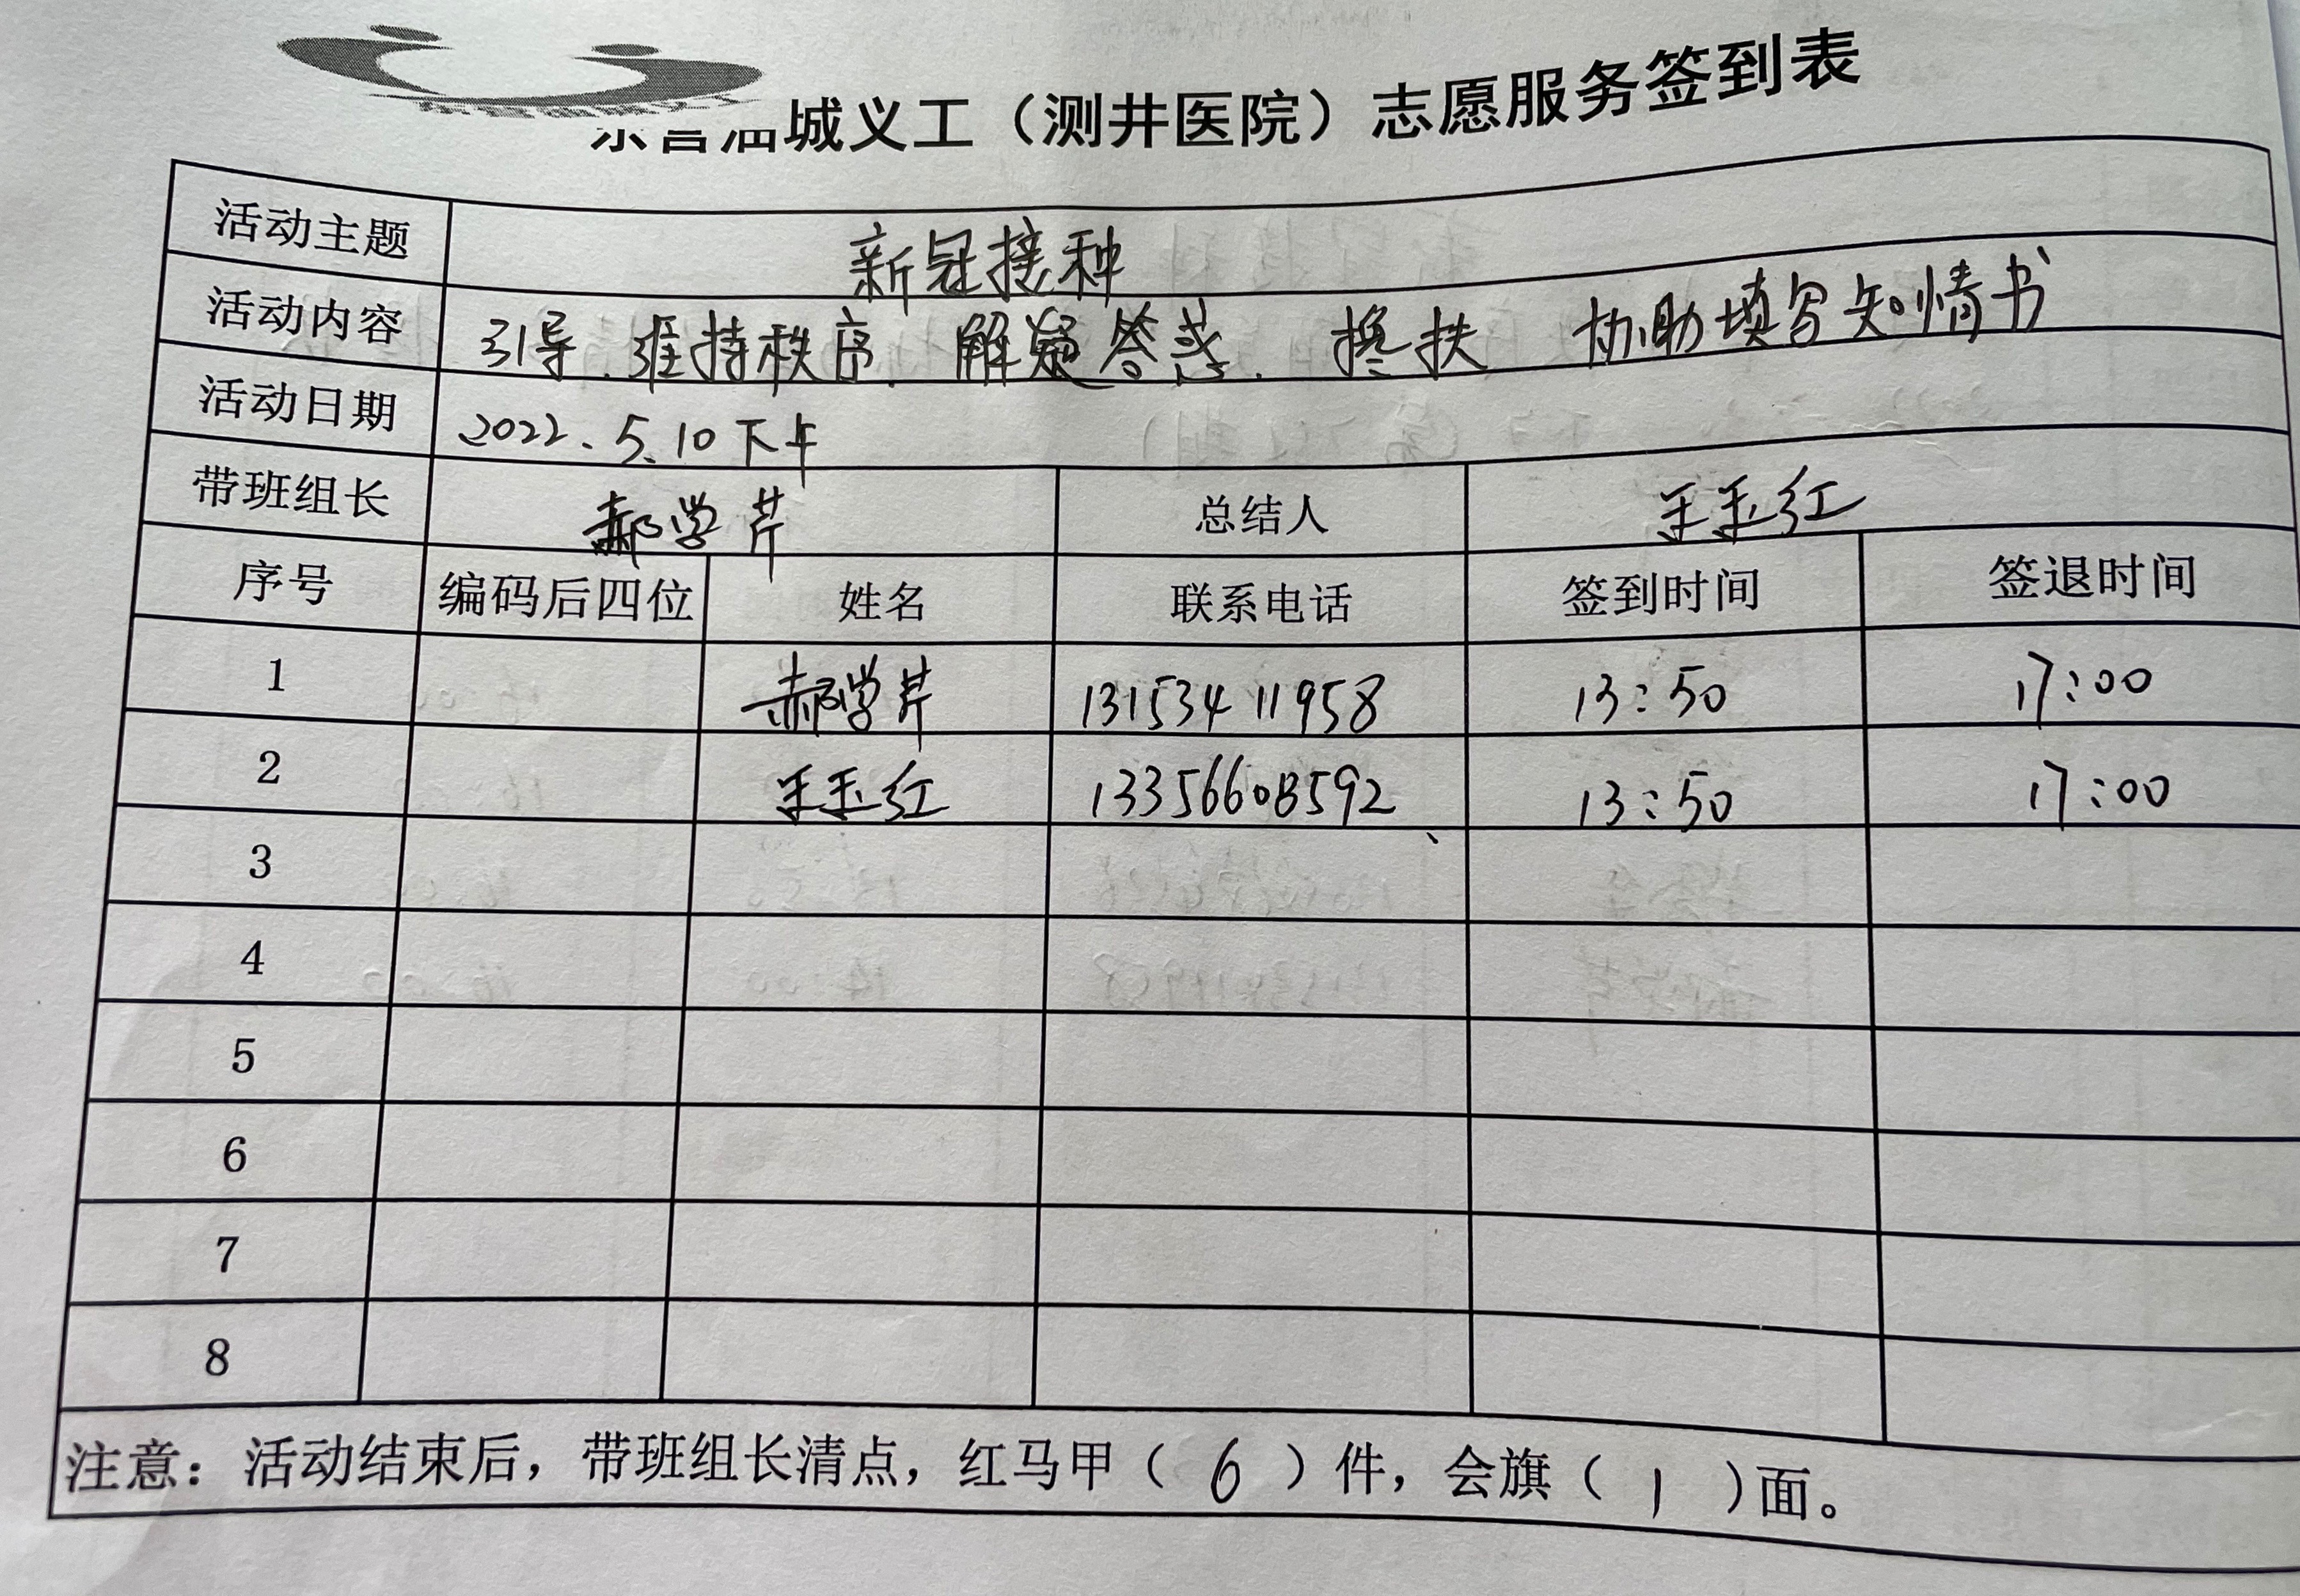 东营油城义工（测井医院）志愿服务签到表
活动主题 新冠接种
活动内容 引导.维持秩序.解疑答惑.搀扶 协助填写知情书
活动日期 2022.5.10下午
带班组长 郝学芹 总结人 王玉红
序号 编码后四位 姓名 联系电话 签到时间 签退时间
1 郝学芹 13153411958 13:50 17:00
2 王玉红 13356608592 13:50 17:00
3
4
5
6
7
8
注意：活动结束后，带班组长清点，红马甲（6）件，会旗（1）面。